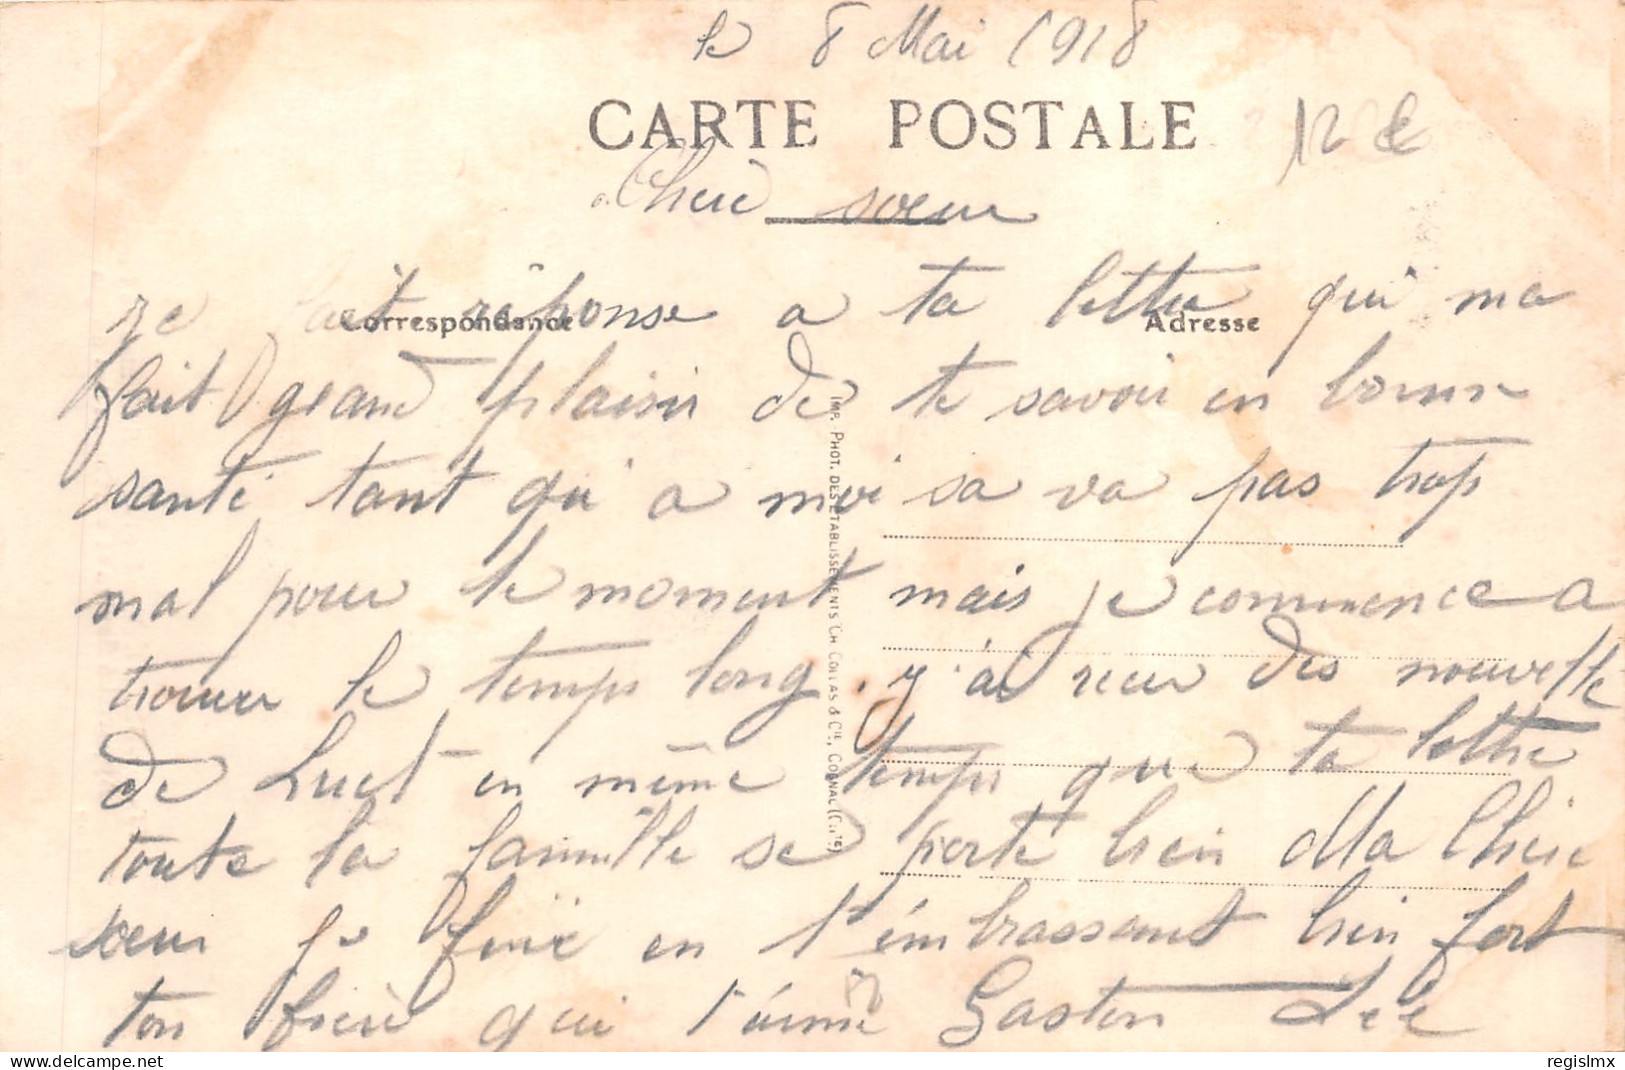 le 8 Mai 1918
CARTE POSTALE
12
Cherè soeur
Correspondance
Adresse
je fait rêponse a ta lettre qui ma
fait grand plaisir de te savoir en bonne
santé tant qu'a moi sa va pas trop
mal pour le moment mais je commence a
trouver le temps long. y'ai recu des nouvelle
de Lucet en même temps que ta lettre
toute la famille se porte bien Ma Chere
soeur je finie en t'embrassant bien fort
ton frere qui t'aime Gaston
IMP. PHOT. DES ETABLISSEMENTS CH. COLLAS & Cie, COGNAC (Ch te)
regislmx